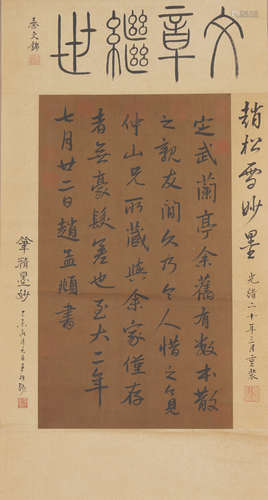 文章繼世
秦文錦
趙松雪妙墨
光緒二十年三月重裝
定武蘭亭余舊有數本散
之親友間久乃令人惜之見
仲山兄所藏與余家僅存
者無豪髮差也至大二年
七月廿二日趙孟頫書
筆精墨妙